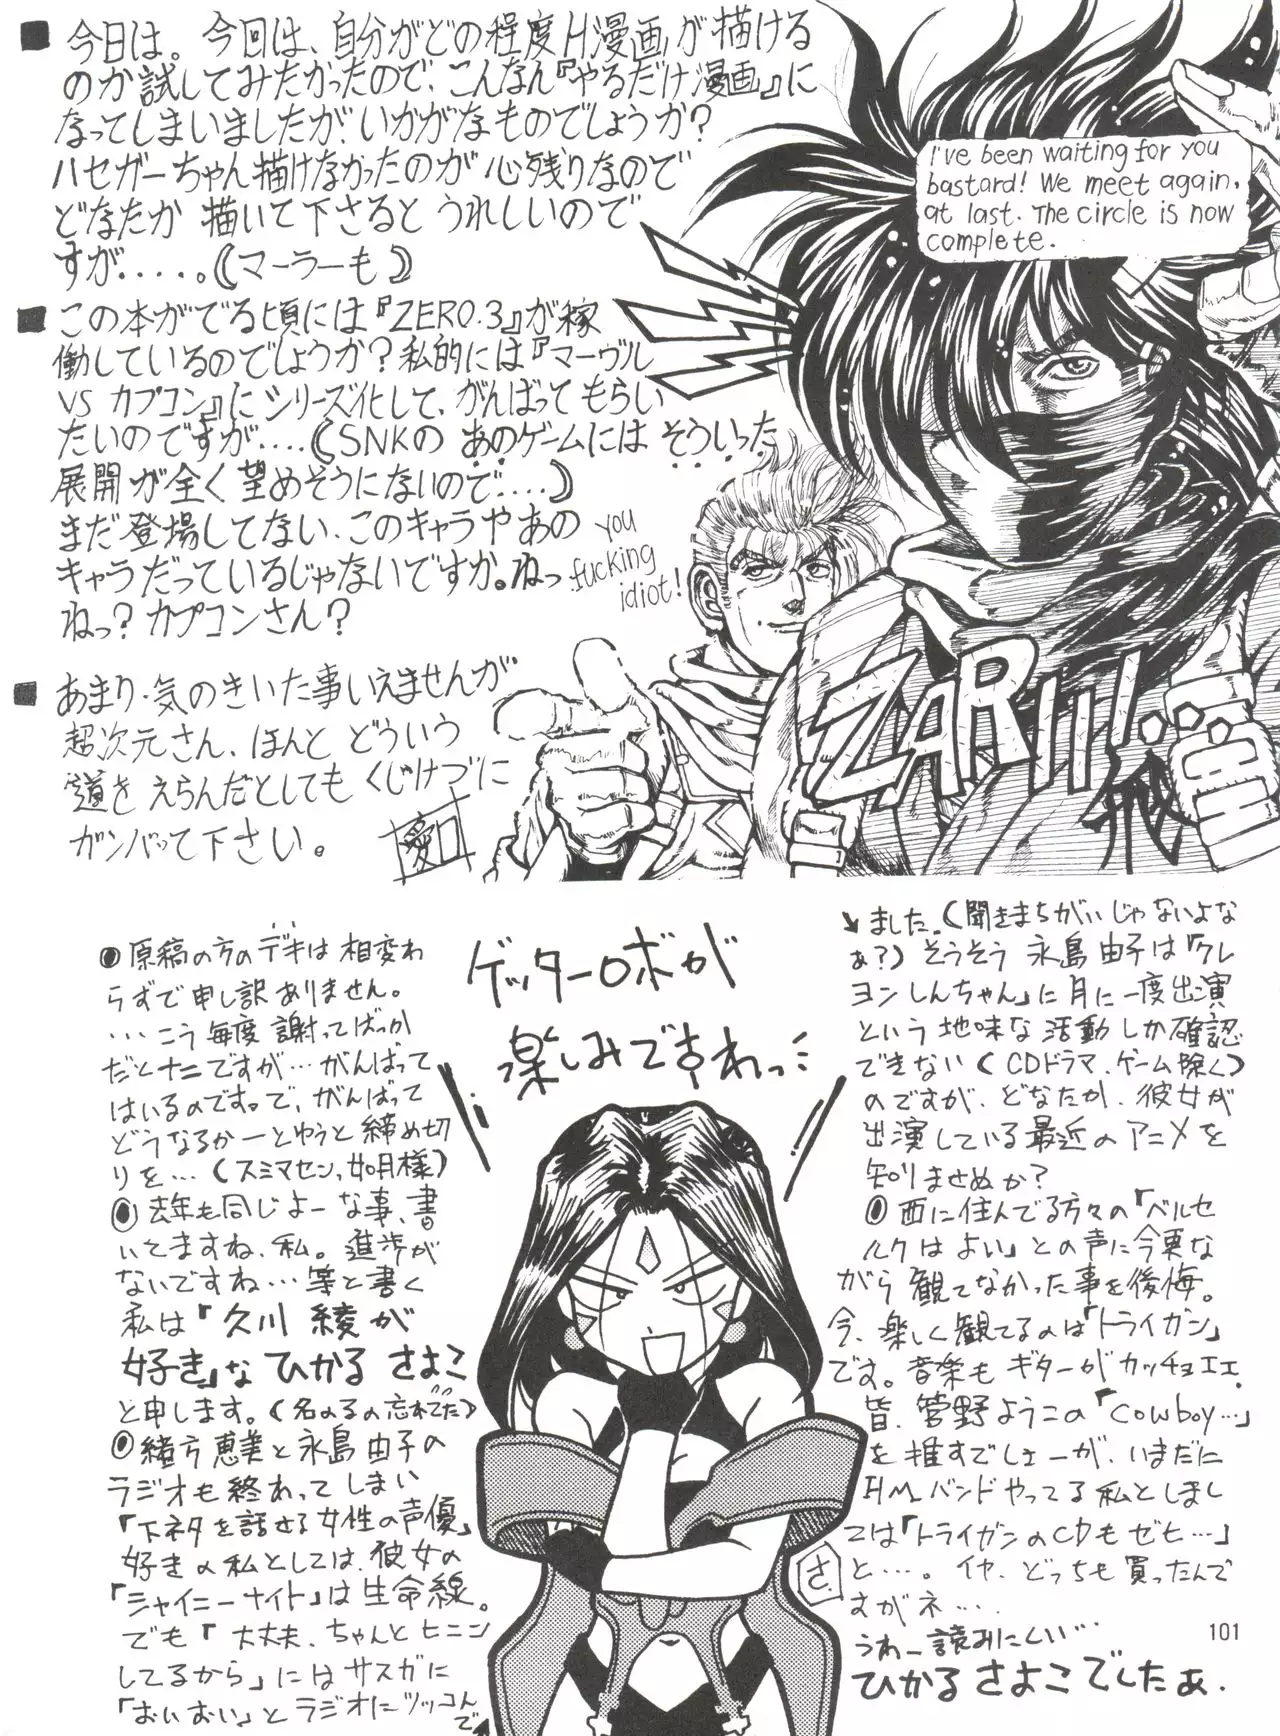 ■今日は。今回は、自分がどの程度H漫画が描ける
のか試してみたかったので、こんなん『やるだけ漫画』に
なってしまいましたが、いかがなものでしょうか?
ハセガーちゃん描けなかったのが心残りなので
どなたか 描いて下さると うれしいので
すが.....。(マーラーも)
■この本がでる頃には『ZERO.3』が稼
働しているのでしょうか?私的には『マーヴル
VS カプコン』にシリーズ化して、がんばって もらい
たいのですが....(SNKの あのゲームには そういった
展開が全く望めそうにないので....)
まだ登場してない、このキャラやあの
キャラだっているじゃないですか。ねっ
ねっ?カプコンさん?
■あまり・気のきいた事いえませんが
超次元さん、ほんと どういう
道を えらんだとしても くじけづに
ガンバって下さい。
愛口
I've been waiting for you
bastard! We meet again,
at last. The circle is now
complete.
you
fucking
idiot!
ZARIII!..
飛
●原稿の方のデキは 相変わ
らずで申し訳ありません。
...こう毎度謝ってばっか
だとナニですが...がんばって
はいるのですっ。で、がんばって
どうなるかーとゆうと 締め切
りを...(スミマセン,如月様)
●去年も同じよーな事、書
いてますね、私。進歩が
ないですね...等と書く
私は「久川 綾が
好き」な ひかる さよこ
と申します。(名のるの忘れてた)
●緒方 恵美と永島 由子の
ラジオも終わってしまい
「下ネタを話せる女性の声優」
好きの私としては、彼女の
「シャイニーナイト」は生命線。
でも「大丈夫、ちゃんとヒニン
してるから」にはサスガに
「おいおい」とラジオにツッコんで
ゲッターロボが
楽しみですわっ
さ
ました。(聞きまちがいじゃないよな
ぁ?)そうそう 永島 由子は「クレ
ヨンしんちゃん」に月に一度出演
という 地味な活動しか確認
できない(CDドラマ、ゲーム除く)
のですが、どなたか、彼女が
出演している最近のアニメを
知りませぬか?
●西に住んでる方々の「ベルセ
ルクはよい」との声に今更な
がら 観てなかった事を後悔。
今、楽しく観てるのは「トライガン」
です。音楽もギターがカッチョエエ.
皆、菅野ようこの「cowboy...」
を推すでしょーが、いまだに
H.M.バンドやってる私としまし
ては「トライガンのCDもゼヒ...」
と...。イヤ、どっちも買ったんで
すがネ...
うわー読みにくい...
ひかる さよこでしたぁ.
101